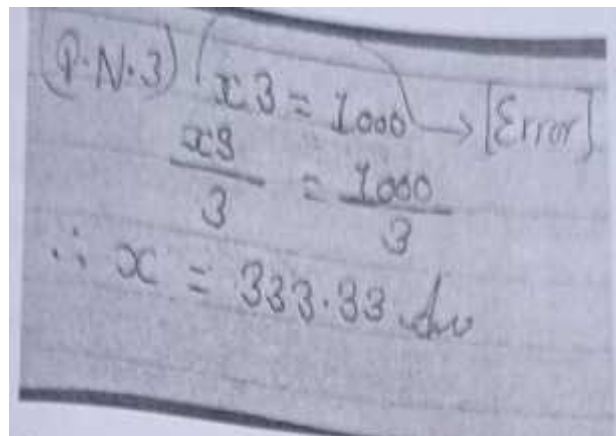 (P.N.3) x3 = 1000 → [Error]
x3/3 = 1000/3
∴ x = 333.33 Ans